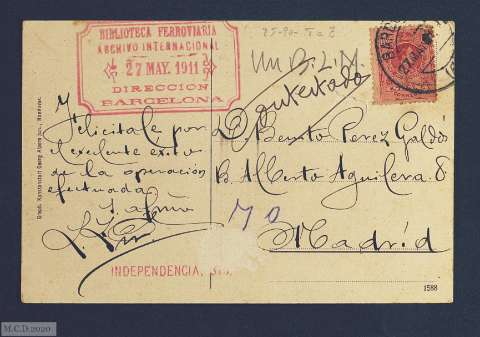 BIBLIOTECA FERROVIARIA
ARCHIVO INTERNACIONAL
27 MAY. 1911
DIRECCION
BARCELONA
Un B.L.M.
contestado
BARC
27 MAY
Y
felicitale por
el exelente exito
de la operación
efectuada
D. Benito Perez Galdós
B. Alberto Aguilera 8
70
Madrid
INDEPENDENCIA,
1588
M.C.D.2020